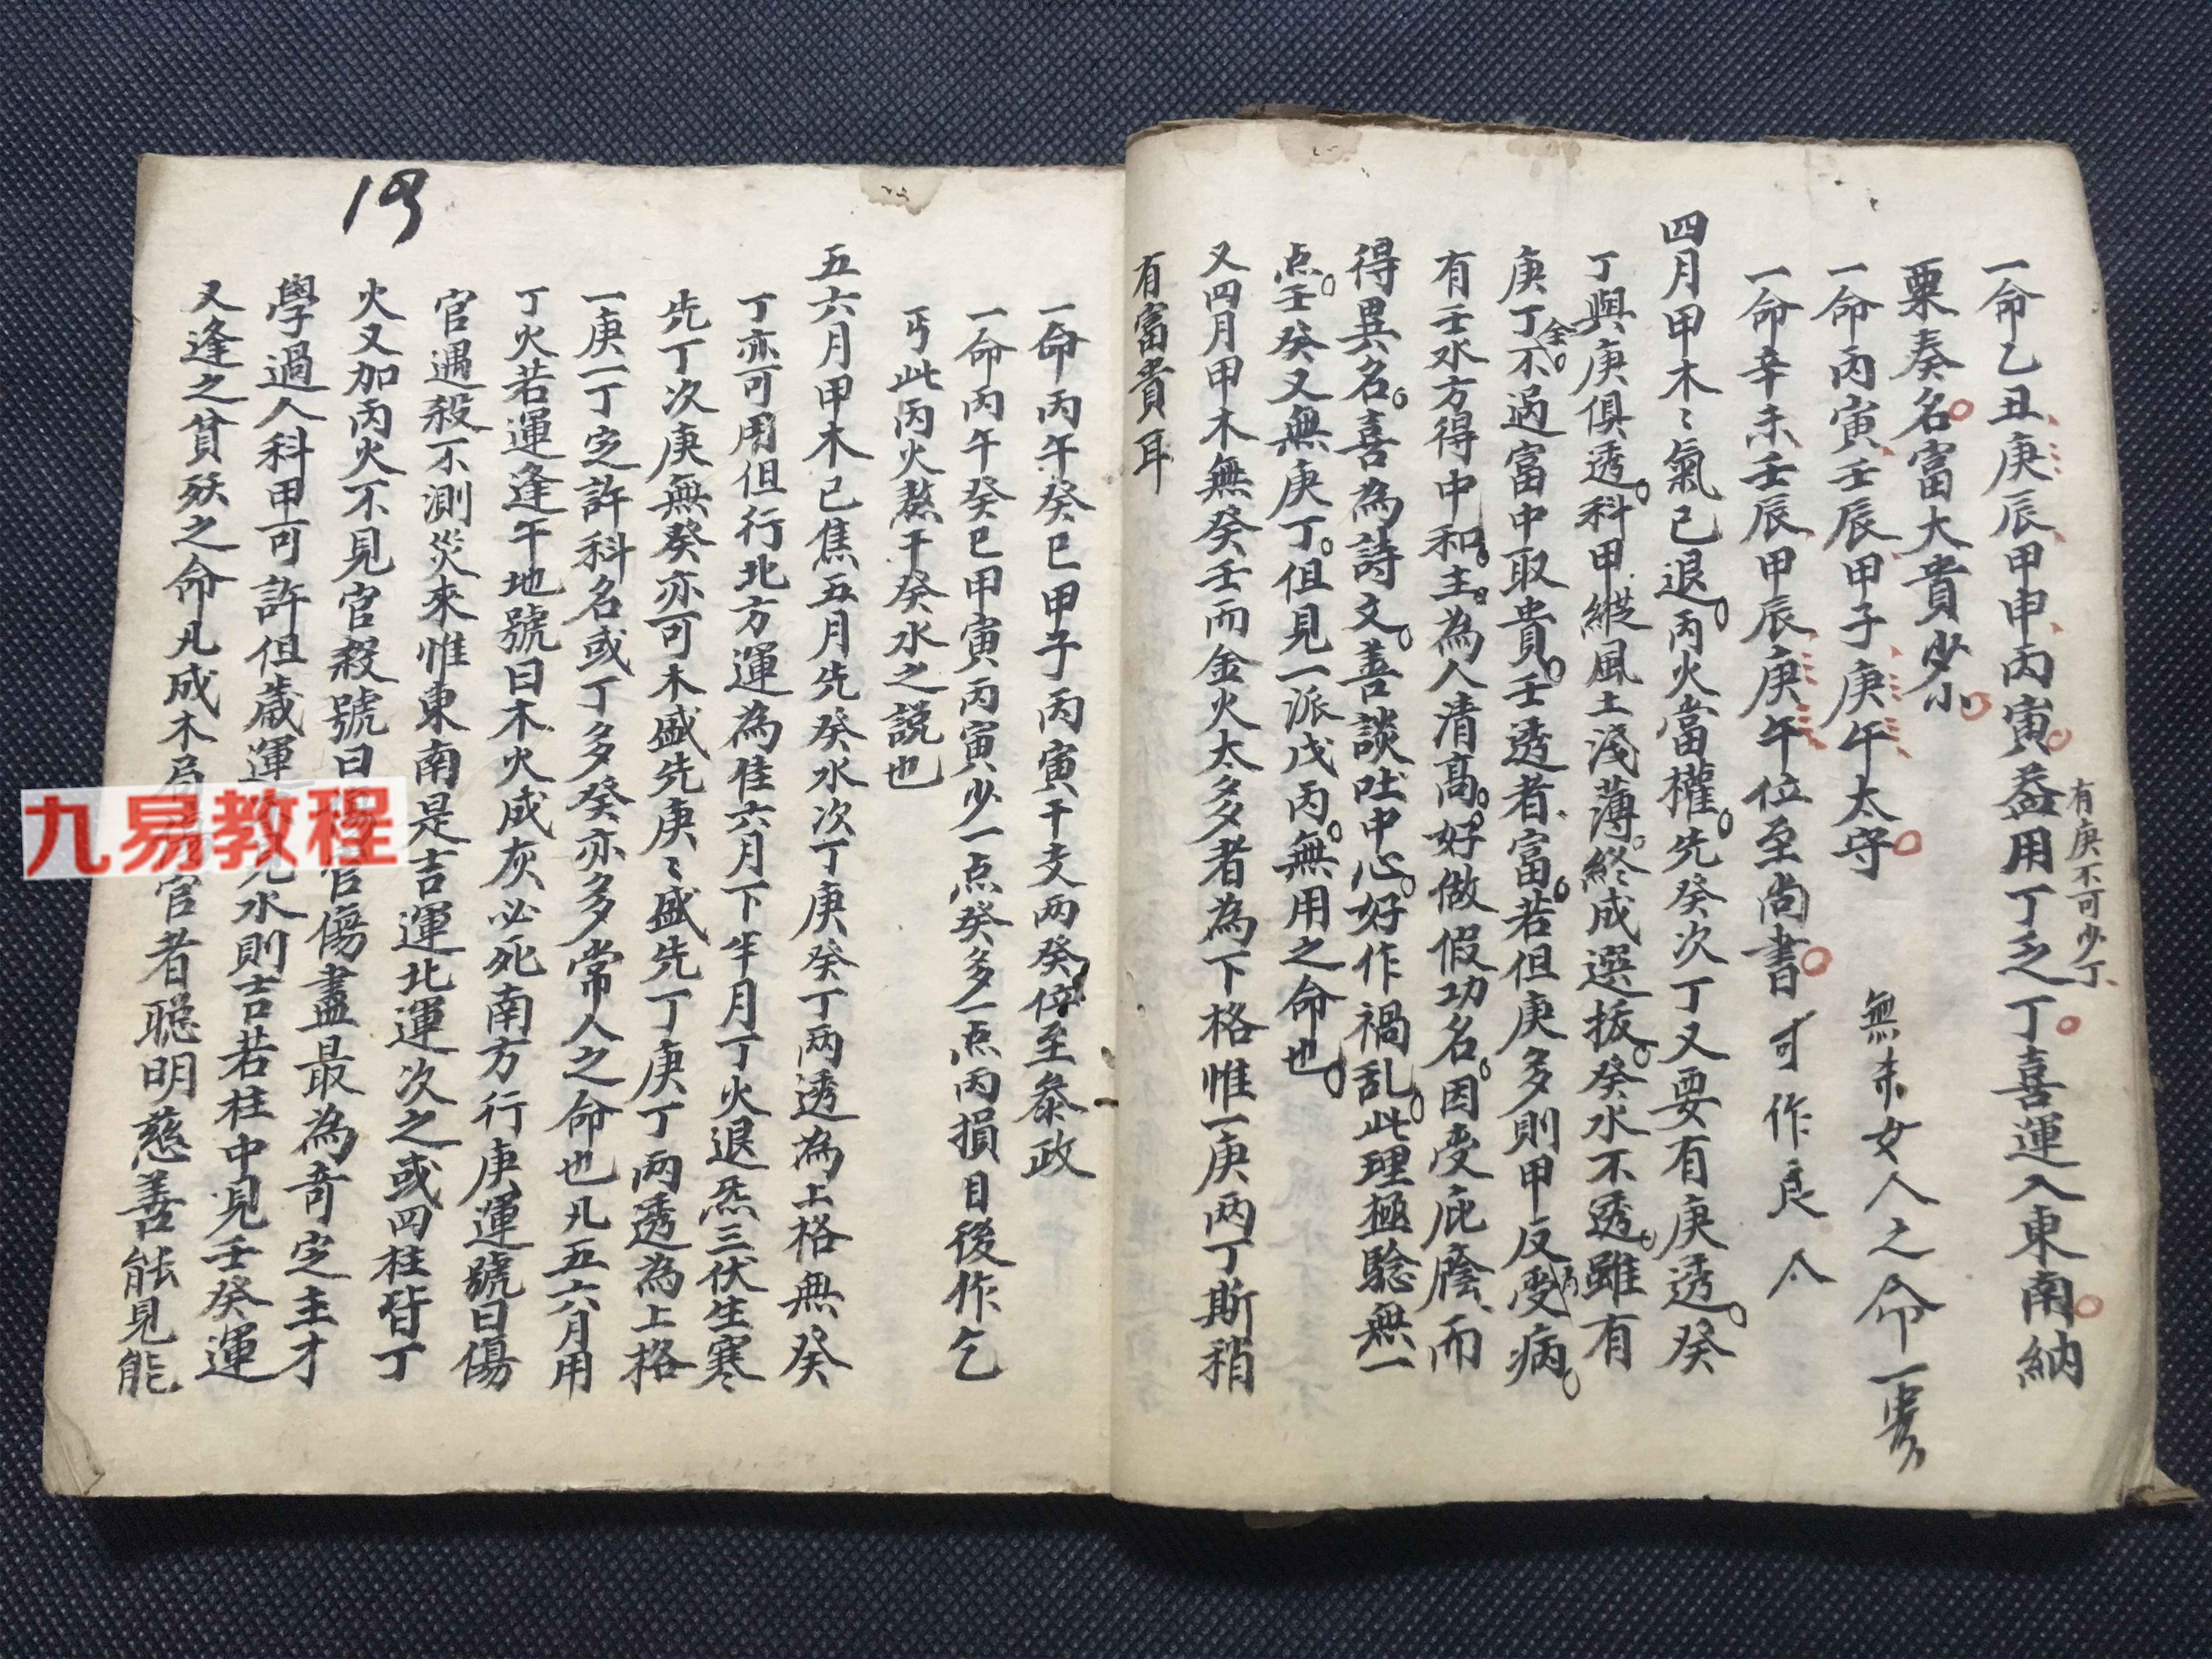 有庚不可少丁
一命乙丑庚辰甲申丙寅益用丁乏丁喜運入東南納
粟奏名富大貴少小
一命丙寅壬辰甲子庚午太守
無未女人之命一
一命辛未壬辰甲辰庚午位至尚書可作良人
四月甲木〻氣已退丙火當權先癸次丁又要有庚透癸
丁與庚俱透科甲縱風土淺薄終成選拔癸水不透雖有
庚丁不過富中取貴壬透者富若但庚多則甲反受病
金
有壬水方得中和主為人清高好做假功名因受庇廕而
得異名喜為詩文善談吐中心好作禍乱此理極驗無一
点壬癸又無庚丁但見一派戊丙無用之命也
又四月甲木無癸壬而金火太多者為下格惟一庚兩丁斯稍
有富貴耳
一命丙午癸巳甲子丙寅干支两癸倍至叅政
一命丙午癸巳甲寅丙寅少一点癸多一点丙損目後作乞
丐此丙火熬干癸水之説也
五六月甲木已焦五月先癸水次丁庚癸丁两透為上格無癸
丁亦可用但行北方運為佳六月下半月丁火退炁三伏生寒
先丁次庚無癸亦可木盛先庚〻盛先丁庚丁两透為上格
一庚一丁定許科名或丁多癸亦多常人之命也凡五六月用
丁火若運逢午地號曰木火成灰必死南方行庚運號曰傷
官遇殺不測災來惟東南是吉運北運次之或四柱皆丁
火又加丙火不見官殺號曰傷官傷盡最為奇定主才
學過人科甲可許但歲運見水則吉若柱中見壬癸運
又逢之貧殀之命凡成木局傷官者聰明慈善能見能
九易教程